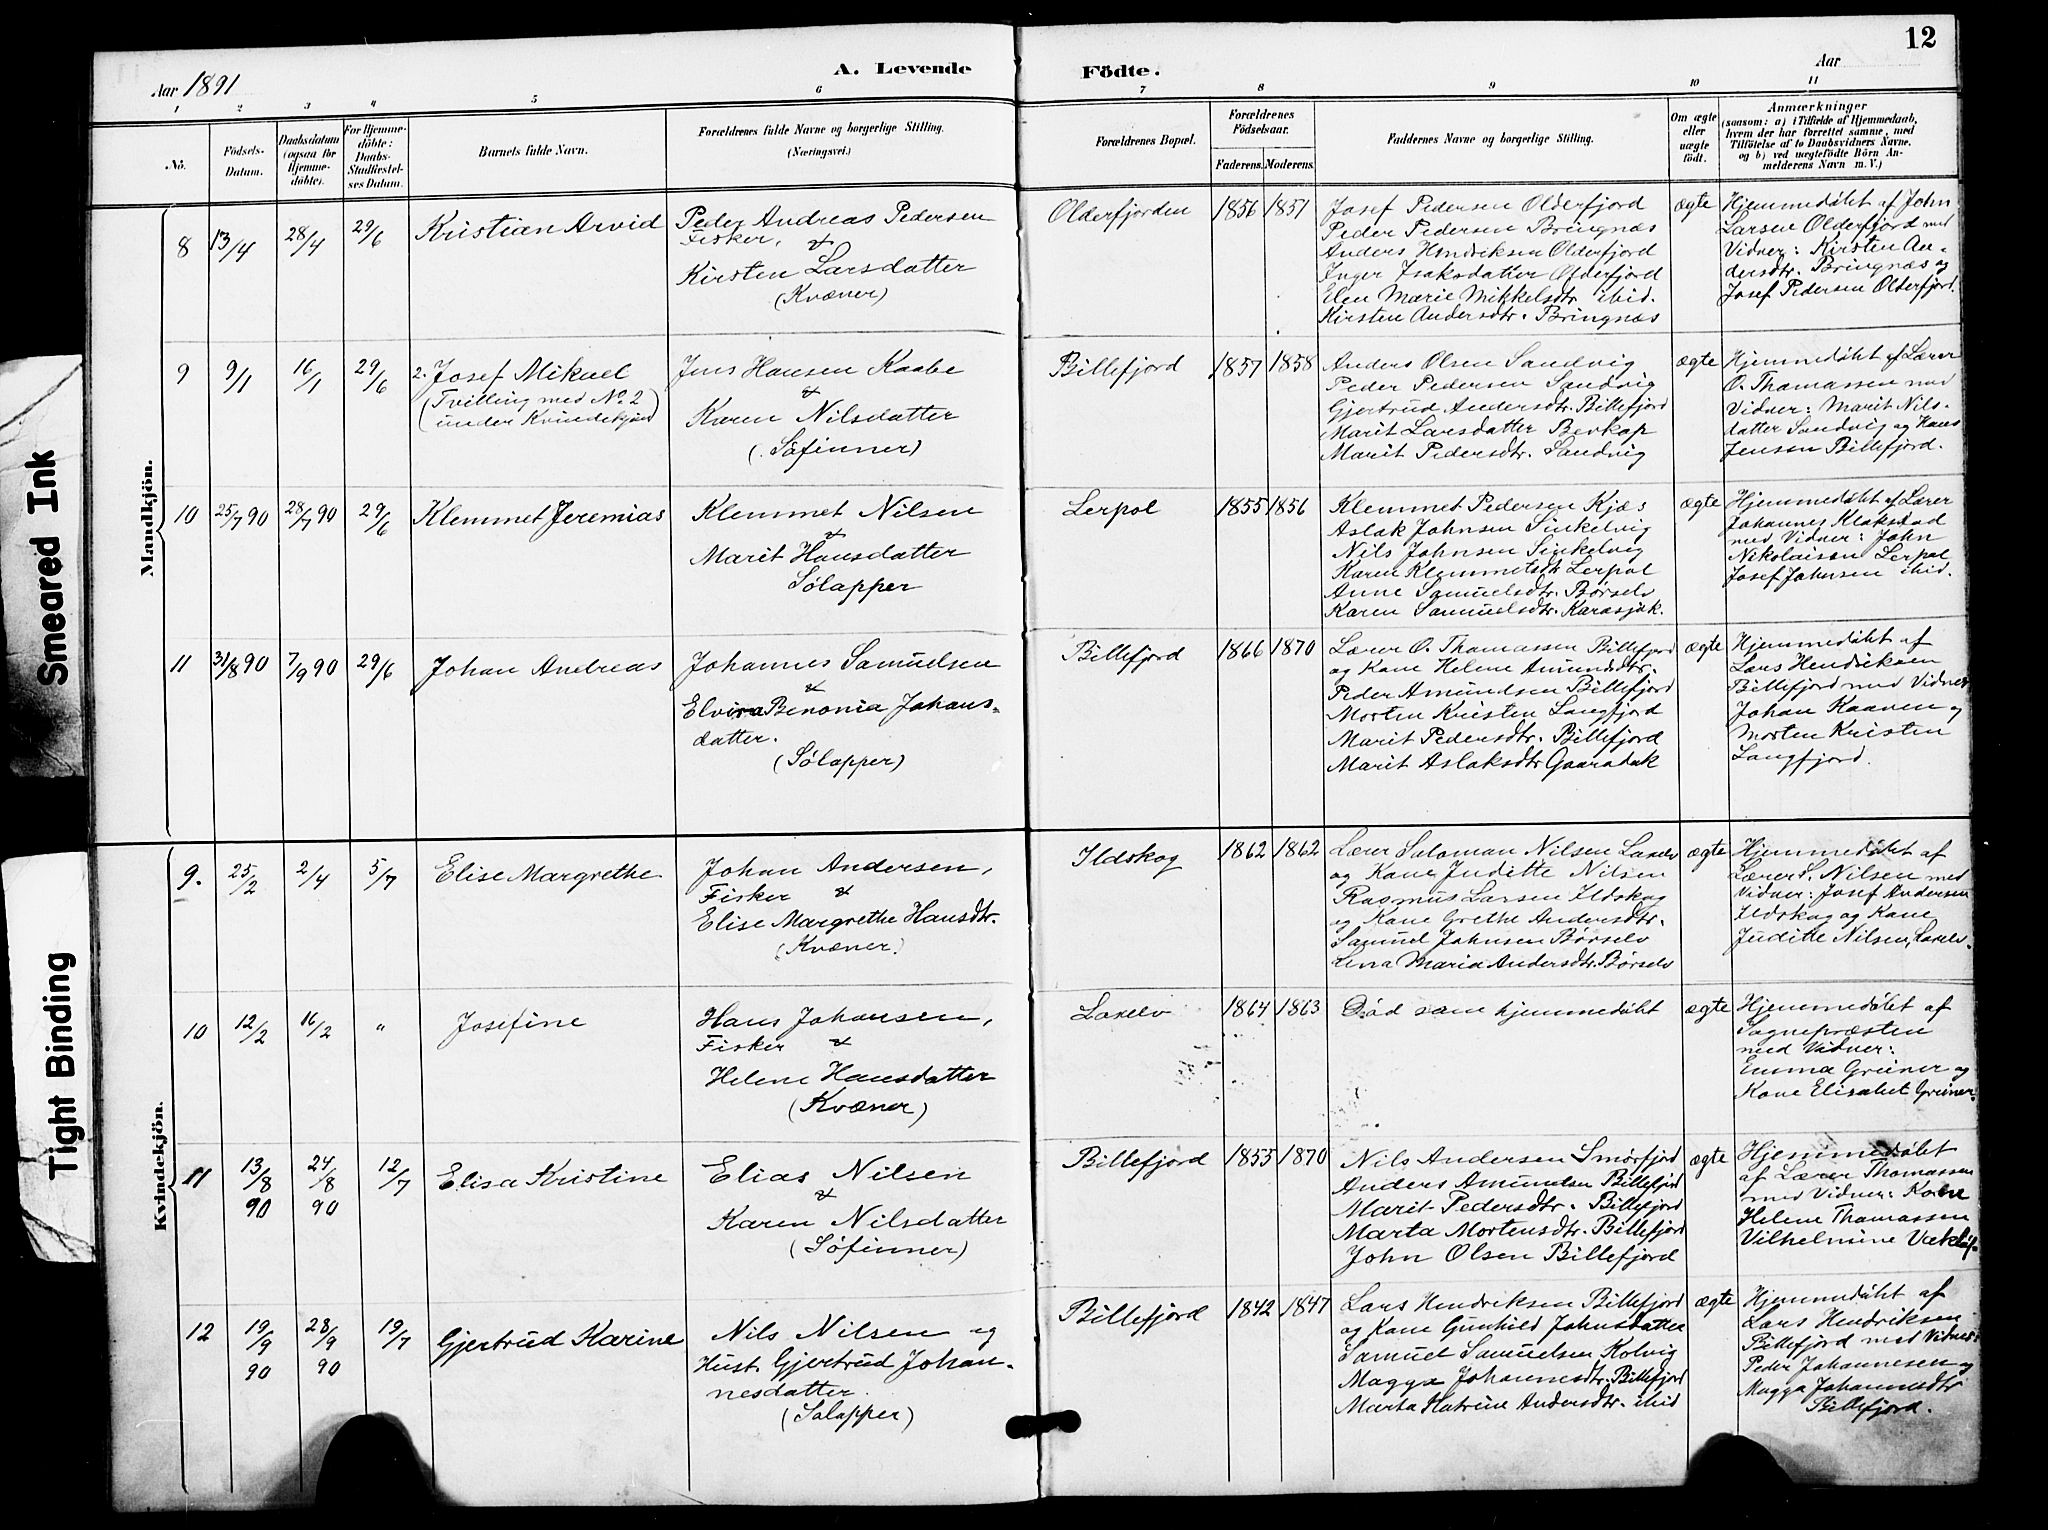 12
Aar 1891
A. Levende Födte.
Aar
1 2 3 4 5 6 7 8 9 10 11
No.
Födsels-Datum.
Daabsdatum (ogsaa for Hjemme-döbte).
For Hjemme-döbte: Daabs-Stadfæstel-ses Datum.
Barnets fulde Navn.
Forældrenes fulde Navne og borgerlige Stilling.
(Næringsvei.)
Forældrenes Bopæl.
Forældrenes Födselsaar.
Faderens. Moderens.
Faddernes Navne og borgerlige Stilling.
Om ægte eller uægte født.
Anmærkninger
(saasom: a) i Tilfælde af Hjemmedaab,
hvem der har forrettet samme, med
Tilföielse af to Daabsvidners Navne,
og b) ved uægtefödte Börn An-
melderens Navn m.V.)
Mandkjön.
8 13/4 28/4 29/6 Kristian Arvid
Peder Andreas Pedersen
Fisker, &
Kirsten Larsdatter
(Kvæner)
Olderfjorden 1856 1851
Josef Pedersen Olderfjord
Peder Pedersen Bringnæs
Anders Hendriksen Olderfjord
Inger Isaksdatter Olderfjord
Elen Marie Mikkelsdtr. ibid.
Kirsten Andersdtr. Bringnæs
ægte
Hjemmedøbt af John
Larsen Olderfjord med
Vidner: Kirsten An-
dersdtr. Bringnæs og
Josef Pedersen Olderfjord.
9 9/1 16/1 29/6 2. Josef Mikael
(Tvilling med No. 2
under Kvindekjøn)
Jens Hansen Kaabe
&
Karen Nilsdatter
(Söfinner)
Billefjord 1857 1858
Anders Olsen Sandvig
Peder Pedersen Sandvig
Gjertrud Andersdtr. Billefjord
Marit Larsdatter Bevkop
Marit Pedersdtr. Sandvig
ægte
Hjemmedøbt af Lærer
O. Thomassen med
Vidner: Marit Nils-
datter Sandvig og Hans
Jensen Billefjord.
10 25/7 90 28/7 90 29/6 Klemmet Jeremias
Klemmet Nilsen
&
Marit Hansdatter
Sølapper
Lerpol 1855 1856
Klemmet Pedersen Kjæs
Aslak Johnsen Sinkelvig
Nils Johnsen Sinkelvig
Karen Klemmetsdtr Lerpol
Anne Samuelsdtr. Børselv
Karen Samuelsdtr. Karasjok.
ægte
Hjemmedøbt af Lærer
Johannes Klokstad
med Vidner: John
Nikolaisen Lerpol
Josef Johnsen ibid.
11 31/8 90 7/9 90 29/6 Johan Andreas
Johannes Samuelsen
&
Elvira Benonia Johans-
datter.
(Sølapper)
Billefjord 1866 1870
Lærer O. Thomassen Billefjord
og Kone Helene Amundsdtr.
Peder Amundsen Billefjord
Morten Kristen Langfjord
Marit Pedersdtr. Billefjord
Marit Aslaksdtr
ægte
Hjemmedøbt af
Lars Hendriksen
Billefjord med Vidner
Johan Kaaven og
Morten Kristen
Langfjord.
Kvindekjön.
9. 25/2 2/4 5/7 Elise Margrethe
Johan Andersen,
Fisker &
Elise Margrethe Hansdtr.
(Kvæner)
Ildskog 1862 1862
Lærer Salomon Nilsen Laxelv
og Kone Juditte Nilsen
Rasmus Larsen Ildskog
og Kone Grethe Andersdtr.
Samuel Johnsen Børselv
Lena Maria Andersdtr. Børselv
ægte
Hjemmedøbt af
Lærer S. Nilsen med
Vidner: Josef Andersen
Ildskog og Kone
Juditte Nilsen, Laxelv.
10 12/2 16/2 " Josefine
Hans Johansen,
Fisker &
Helene Hansdatter
(Kvæner)
Laxelv 1864 1863
Død som hjemmedøbt
ægte
Hjemmedøbt af
Sognepræsten
med Vidner:
Emma Greiner og
Kone Elisabet Greiner.
11 13/8 90 24/8 90 12/7 Elisa Kristine
Elias Nilsen
&
Karen Nilsdatter
(Søfinner)
Billefjord 1855 1870
Nils Andersen Smörfjord
Anders Amundsen Billefjord
Marit Pedersdtr. Billefjord
Marta Mortensdtr. Billefjord
John Olsen Billefjord
ægte
Hjemmedøbt
af Lærer Thomassen
med Vidner: Kone
Helene Thomassen
Vilhelmine
12 19/9 90 28/9 90 19/7 Gjertrud Karine
Nils Nilsen og
Hust. Gjertrud Johan-
nesdatter.
(Sølapper)
Billefjord 1842 1847
Lars Hendriksen Billefjord
og Kone Gunhild Johnsdatter
Samuel Samuelsen Kolvig
Magga Johannesdtr. Billefjord
Marta Katrine Andersdtr. ibid
ægte
Hjemmedøbt af
Lars Hendriksen
Billefjord med Vidner:
Peder Johannesen og
Magga Johannesdtr
Billefjord.
Smeared Ink
Tight Binding